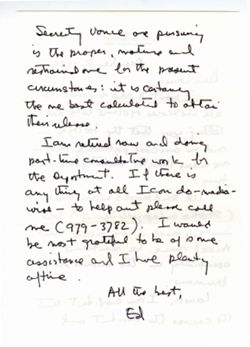 Secretary Vance are pursuing
is the proper, mature and
restrained one for the present
circumstances: it is certainly
the one best calculated to attain
their release.
I am retired now and doing
part-time consultative work for
the Department. If there is
anything at all I can do - media-
wise - to help out please call
me (979-3782). I would
be most grateful to be of some
assistance and I have plenty
of time.
All the best,
Ed